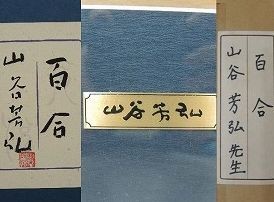 百合
山谷芳弘
山谷芳弘
百合
山谷 芳弘 先生